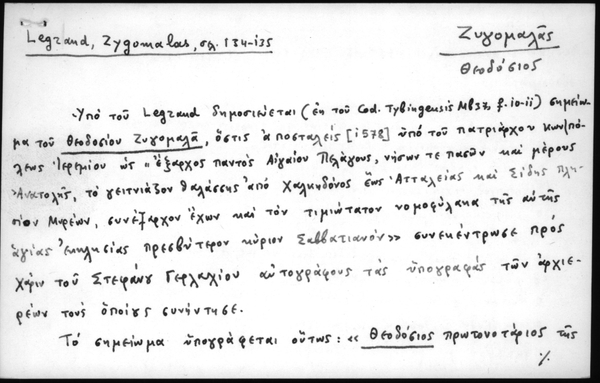 Legrand, Zygomalas, σελ. 134-135
Ζυγομαλᾶς
Θεοδόσιος
Ὑπό τοῦ Legrand δημοσιεύεται (ἐκ τοῦ Cod. Tybingensis Mb37, f. 10-11) σημείω-
μα τοῦ Θεοδοσίου Ζυγομαλᾶ, ὅστις ἀποσταλείς [1578] ὑπό τοῦ πατριάρχου Κων/πό-
λεως Ἱερεμίου ὡς "ἔξαρχος παντός Αἰγαίου Πελάγους, νήσων τε πασῶν καί μέρους
Ἀνατολῆς, τό γειτνιάζον θαλάσσης ἀπό Χαλκηδόνος ἕως Ἀτταλείας καί Σίδης πλη-
σίον Μυρέων, συνέξαρχον ἔχων καί τόν τιμιώτατον νομοφύλακα τῆς αὐτῆς
ἁγίας ἐκκλησίας πρεσβύτερον κύριον Σαββατιανόν» συνεκέντρωσε πρός
χάριν τοῦ Στεφάνου Γερλαχίου αὐτογράφους τάς ὑπογραφάς τῶν ἀρχιε-
ρέων τούς ὁποίους συνήντησε.
Τό σημείωμα ὑπογράφεται οὕτως: «Θεοδόσιος πρωτονοτάριος τῆς
./.